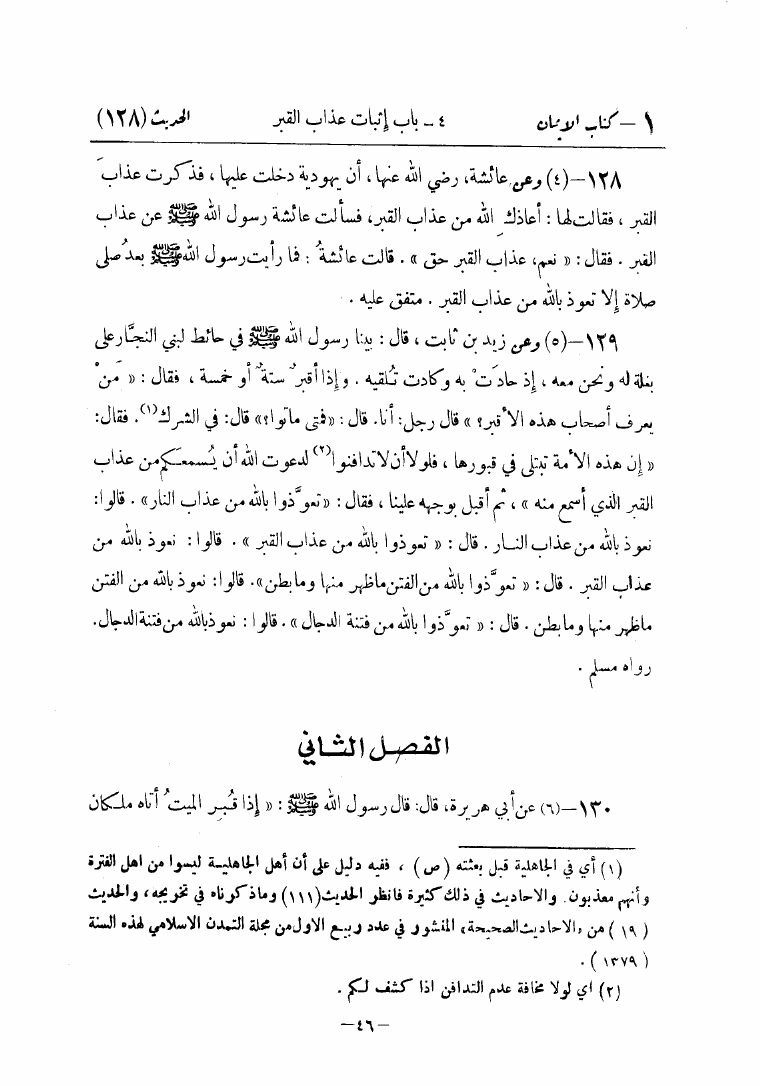 ١ – كتاب الايمان ٤ – باب إثبات عذاب القبر الحديث (١٢٨)
١٢٨–(٤) وعن عائشة، رضي الله عنها، أن يهودية دخلت عليها، فذكرت عذابَ
القبر، فقالت لها: أعاذكِ الله من عذاب القبر، فسألت عائشة رسول الله ﷺ عن عذاب
القبر. فقال: « نعم، عذاب القبر حق ». قالت عائشةُ: فما رأيت رسول الله ﷺ بعدُ صلى
صلاة إلا تعوذ بالله من عذاب القبر. متفق عليه.
١٢٩–(٥) وعن زيد بن ثابت، قال: بينا رسول الله ﷺ في حائط لبني النجَّار على
بغلة له ونحن معه، إذ حادَتْ به وكادت تُلقيه. وإذا أقبرٌ ستةٌ أو خمسة، فقال: « مَنْ
يعرف أصحاب هذه الأقبر؟ » قال رجل: أنا. قال: «فمتى ماتوا؟» قال: في الشرك(١). فقال:
« إن هذه الأمة تبتلى في قبورها، فلولا أن لا تدافنوا(٢) لدعوت الله أن يُسمعَكم من عذاب
القبر الذي أسمع منه »، ثم أقبل بوجهه علينا، فقال: «تعوَّذوا بالله من عذاب النار». قالوا:
نعوذ بالله من عذاب النار. قال: « تعوذوا بالله من عذاب القبر ». قالوا: نعوذ بالله من
عذاب القبر. قال: « تعوَّذوا بالله من الفتن ماظهر منها وما بطن». قالوا: نعوذ بالله من الفتن
ماظهر منها وما بطن. قال: « تعوَّذوا بالله من فتنة الدجال ». قالوا: نعوذ بالله من فتنة الدجال.
رواه مسلم.
الفصل الثاني
١٣٠–(٦) عن أبي هريرة، قال: قال رسول الله ﷺ: « إذا قُبِر الميتُ أتاه ملكان
(١) أي في الجاهلية قبل بعثته (ص)، ففيه دليل على أن أهل الجاهلية ليسوا من اهل الفترة
وأنهم معذبون. والاحاديث في ذلك كثيرة فانظر الحديث (١١١) وما ذكرناه في تخريجه، والحديث
(١٩) من «الاحاديث الصحيحة» المنشور في عدد ربيع الاول من مجلة التمدن الاسلامي لهذه السنة
(١٣٧٩).
(٢) اي لولا مخافة عدم التدافن اذا كشف لكم.
–٤٦–